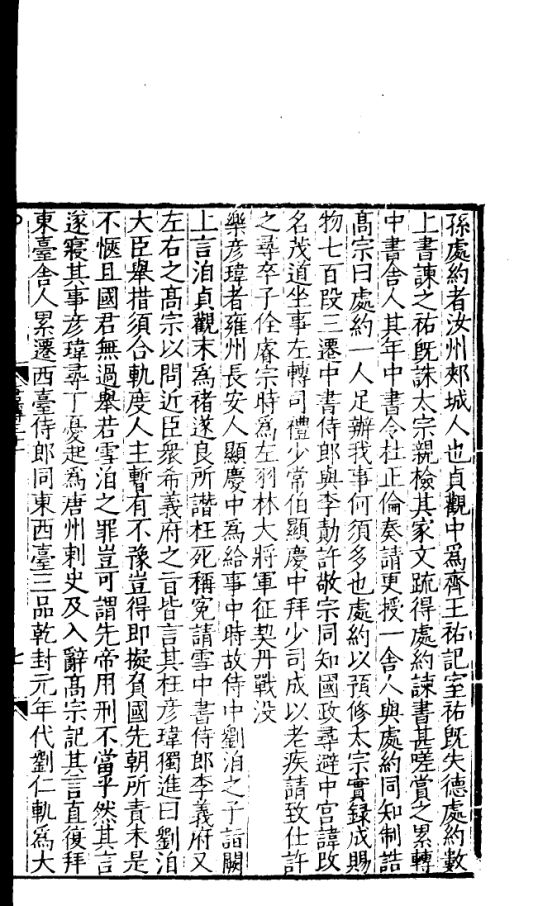 孫處約者汝州郟城人也貞觀中爲齊王祐記室祐旣失德處約數
上書諫之祐旣誅太宗親檢其家文疏得處約諫書甚嗟賞之累轉
中書舍人其年中書令杜正倫奏請更授一舍人與處約同知制誥
高宗曰處約一人足辦我事何須多也處約以預修太宗實錄成賜
物七百段三遷中書侍郎與李勣許敬宗同知國政尋避中宮諱改
名茂道坐事左轉司禮少常伯顯慶中拜少司成以老疾請致仕許
之尋卒子佺睿宗時爲左羽林大將軍征契丹戰没
樂彦瑋者雍州長安人顯慶中爲給事中時故侍中劉洎之子詣闕
上言洎貞觀末爲褚遂良所譖枉死稱冤請雪中書侍郎李義府又
左右之高宗以問近臣衆希義府之旨皆言其枉彦瑋獨進曰劉洎
大臣舉措須合軌度人主暫有不豫豈得即擬負國先朝所責未是
不愜且國君無過舉若雪洎之罪豈可謂先帝用刑不當乎然其言
遂寢其事彦瑋尋丁憂起爲唐州刺史及入辭高宗記其言直復拜
東臺舍人累遷西臺侍郎同東西臺三品乾封元年代劉仁軌爲大